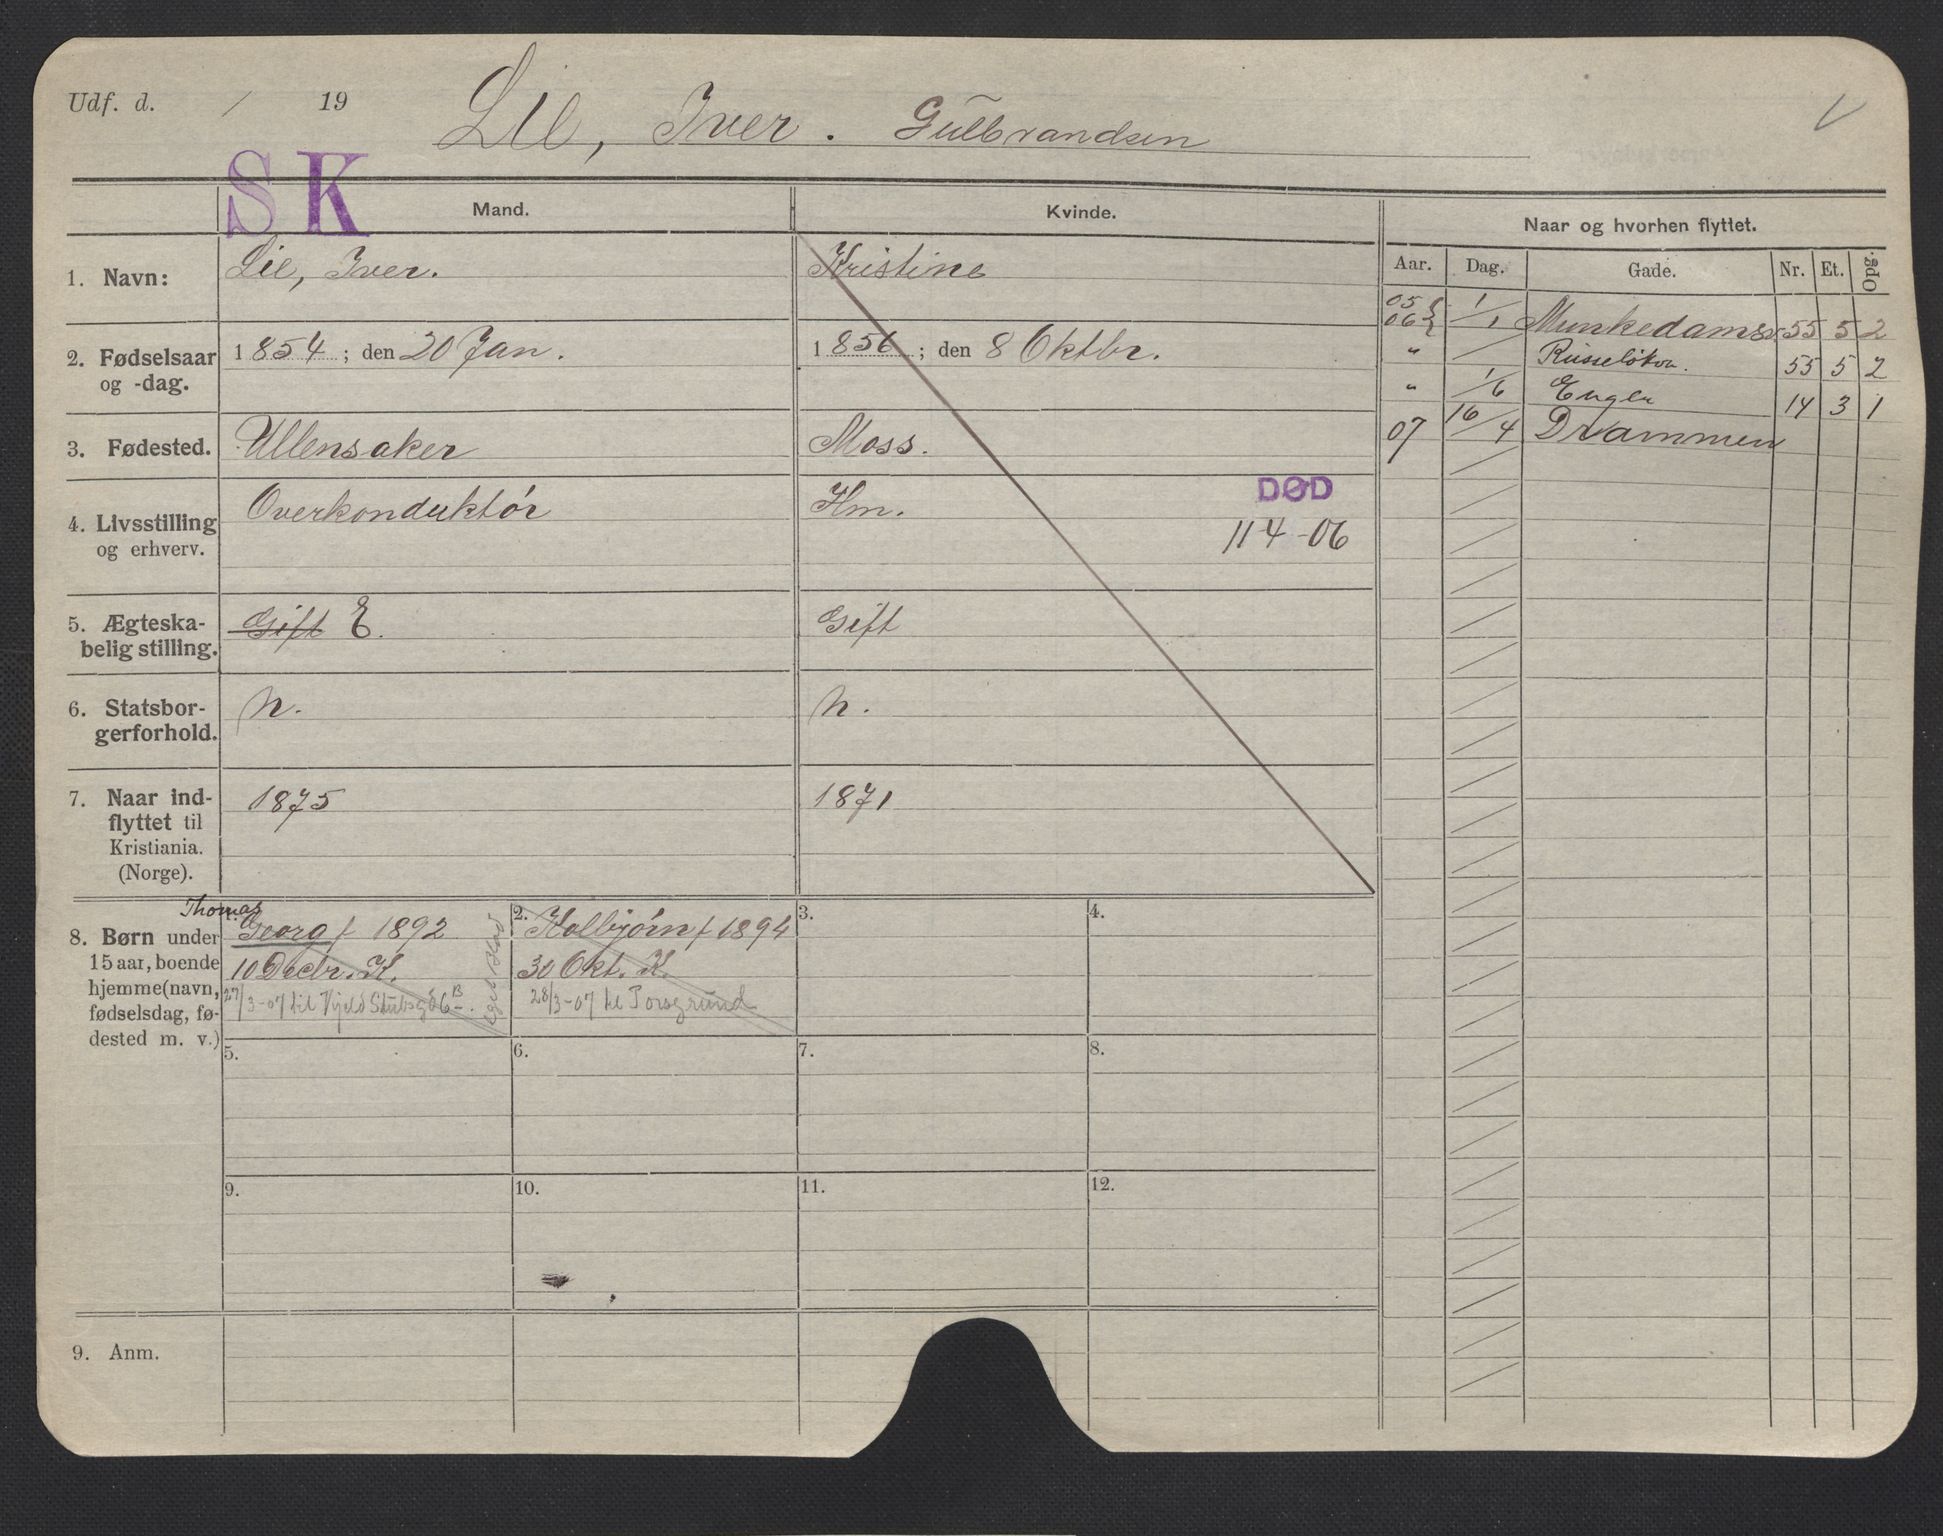 Udf. d. / 19
Lie, Iver. Gulbrandsen
V
S K
Mand.
Kvinde.
Naar og hvorhen flyttet.
Aar. Dag. Gade. Nr. Et. Opg.
1. Navn:
Lie, Iver.
Kristine
2. Fødselsaar
og -dag.
1854; den 20 Jan.
1856; den 8 Oktbr.
3. Fødested.
Ullensaker
Moss.
4. Livsstilling
og erhverv.
Overkonduktør
Hm.
DØD
11 4 - 06
5. Ægteska-
belig stilling.
Gift E.
Gift
6. Statsbor-
gerforhold.
n.
n.
7. Naar ind-
flyttet til
Kristiania.
(Norge).
1875
1871
05
06 } 1/1 Munkedamsv 55 5 2
" / Russeløkv. 55 5 2
" 1/6 Enger 14 3 1
07 16/4 Drammen
8. Børn under
15 aar, boende
hjemme (navn,
fødselsdag, fø-
dested m. v.)
Thomas
Georg f 1892
10 Decbr. K.
27/3-07 til Kjeld Stubsg 06 B
eget blad
2. Kolbjørn f 1894
30 Okt. K.
28/3-07 til Porsgrund
3.
4.
5.
6.
7.
8.
9.
10.
11.
12.
9. Anm.